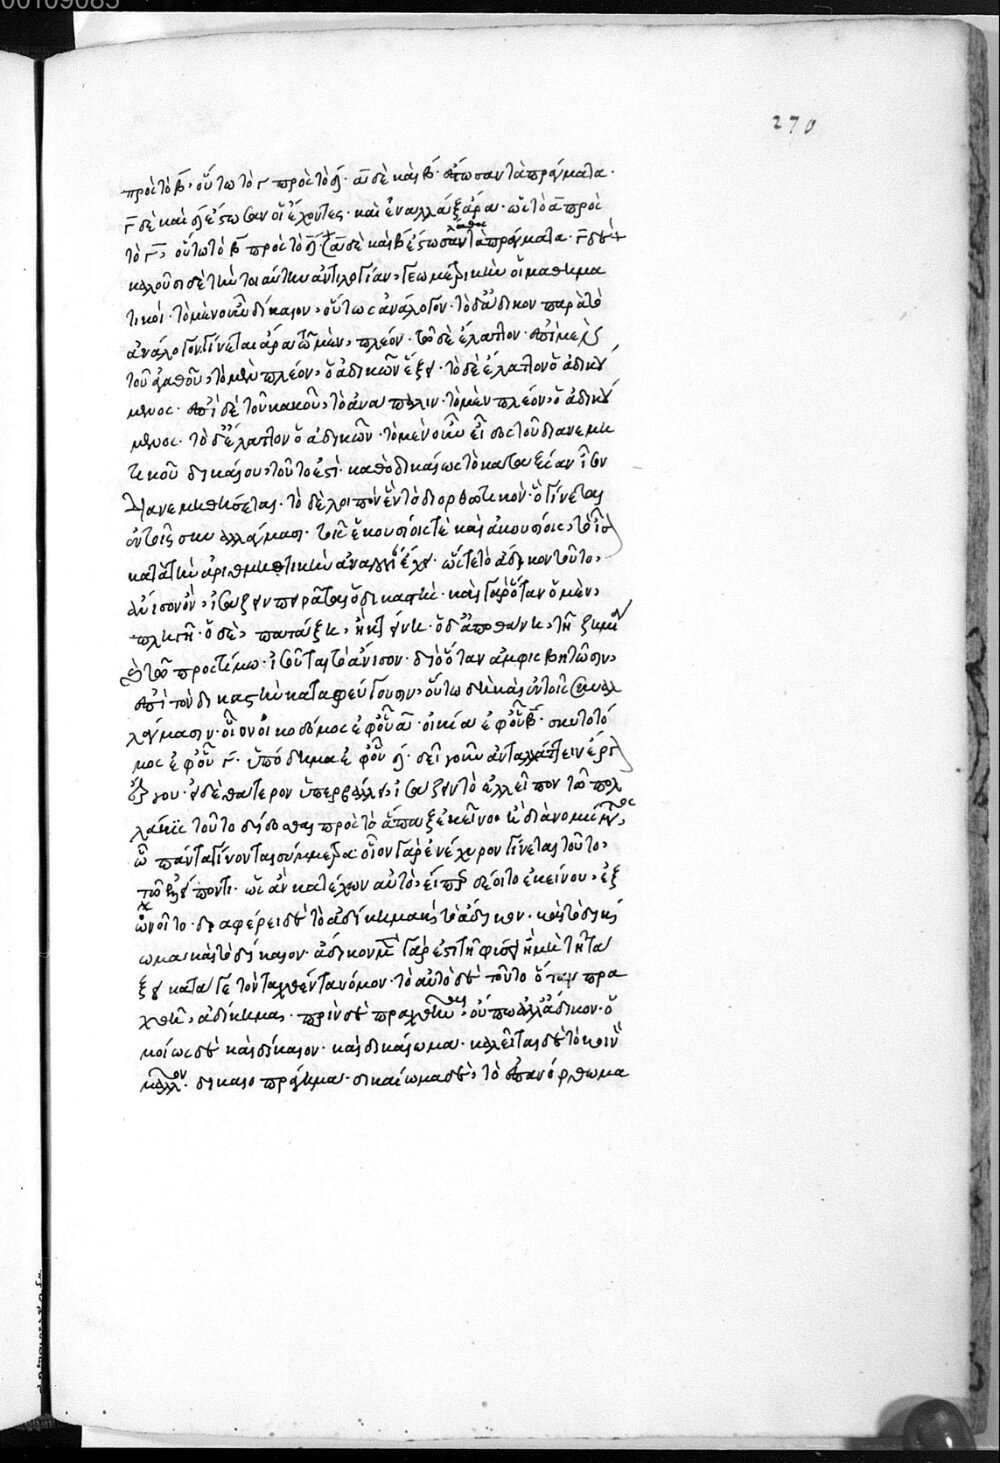 00109085
270
πρὸς τὸ β· οὕτω τὸ γ πρὸς τὸ δ· α δὲ καὶ β· ἔστωσαν τὰ πράγματα·
γ δὲ καὶ δ ἔστωσαν οἱ ἔχοντες· καὶ ἐναλλὰξ ἄρα· ὡς τὸ α πρὸς
τὸ γ, οὕτω τὸ β πρὸς τὸ δ· α δὲ καὶ β ἔστωσαν τὰ πράγματα· γ δὲ
καλοῦσι δὲ τὴν τοιαύτην ἀντιλογίαν, γεωμετρικὴν οἱ μαθημα
τικοί· τὸ μὲν οὖν δίκαιον, οὕτως ἀνάλογον· τὸ δ' ἄδικον παρὰ τὸ
ἀνάλογον. γίνεται ἄρα τὸ μὲν, πλέον· τὸ δὲ ἔλαττον· ἐπὶ μὲν
τοῦ ἀγαθοῦ, τὸ μὲν πλέον, ὁ ἀδικῶν ἕξει· τὸ δὲ ἔλαττον ὁ ἀδικού
μενος· ἐπὶ δὲ τοῦ κακοῦ, τὸ ἀνάπαλιν· τὸ μὲν πλέον, ὁ ἀδικού
μενος· τὸ δ' ἔλαττον ὁ ἀδικῶν· τὸ μὲν οὖν εἶδος τοῦ διανεμη
τικοῦ δικαίου, τοῦτό ἐστι· καθὸ δικαίως τὸ κατ' ἀξίαν ἴσον
διανεμηθήσεται· τὸ δὲ λοιπὸν ἓν τὸ διορθωτικόν· ὃ γίνεται
ἐν τοῖς συναλλάγμασι· τοῖς ἑκουσίοις τὲ καὶ ἀκουσίοις, τὸ ἴσον
κατὰ τὴν ἀριθμητικὴν ἀναλογίαν ἔχει· ὥστε τὸ ἄδικον τοῦτο,
ἄνισον ὂν, ἰσάζειν πειρᾶται ὁ δικαστής· καὶ γὰρ ὅταν ὁ μὲν,
πληγῇ· ὁ δὲ, πατάξῃ, ἢ κτείνῃ· ὁ δ' ἀποθάνῃ, τῇ ζημίᾳ
προστίμῳ· ἰσοῦται τὸ ἄνισον· διὸ ὅταν ἀμφισβητῶσιν,
ἐπὶ τὸν δικαστὴν καταφεύγουσιν, οὕτω δὴ καὶ ἐν τοῖς συναλ
λάγμασιν· οἷον οἰκοδόμος ἐφ' οὗ α· οἰκία ἐφ' οὗ β· σκυτοτό
μος ἐφ' οὗ γ· ὑπόδημα ἐφ' οὗ δ· δεῖ γοῦν ἀνταλλάττειν ἔργον
ἔργου· εἰ δὲ θάτερον ὑπερβάλλει, ἰσάζειν τὸ ἐλλεῖπον τῷ πολ
λάκις τοῦτο δίδοσθαι πρὸς τὸ ἅπαξ ἐκεῖνο· ἢ διὰ νομίσματος,
ᾧ πάντα γίνονται σύμμετρα· οἷον γὰρ ἐνέχυρον γίνεται τοῦτο,
τῷ λείποντι· ὡς ἂν κατέχων αὐτὸ, εἴποτε δέοιτο ἐκείνου, ἕξ
ὠνοῖτο· διαφέρει δὲ τὸ ἀδίκημα καὶ τὸ ἄδικον· καὶ τὸ δικαί
ωμα καὶ τὸ δίκαιον· ἄδικον μὲν γάρ ἐστι τῇ φύσει ἢ μὴν τῇ τά
ξει κατά γε τὸν ταχθέντα νόμον· τὸ αὐτὸ δὲ τοῦτο ὅταν πρα
χθῇ, ἀδίκημα· πρὶν δὲ πραχθῆναι, οὔπω ἀλλ' ἄδικον· ὁ
μοίως δὲ καὶ δίκαιον· καὶ δικαίωμα· καλεῖται δὲ τὸ κοινὸν
μᾶλλον· δικαιοπράγημα· δικαίωμα δὲ, τὸ ἐπανόρθωμα